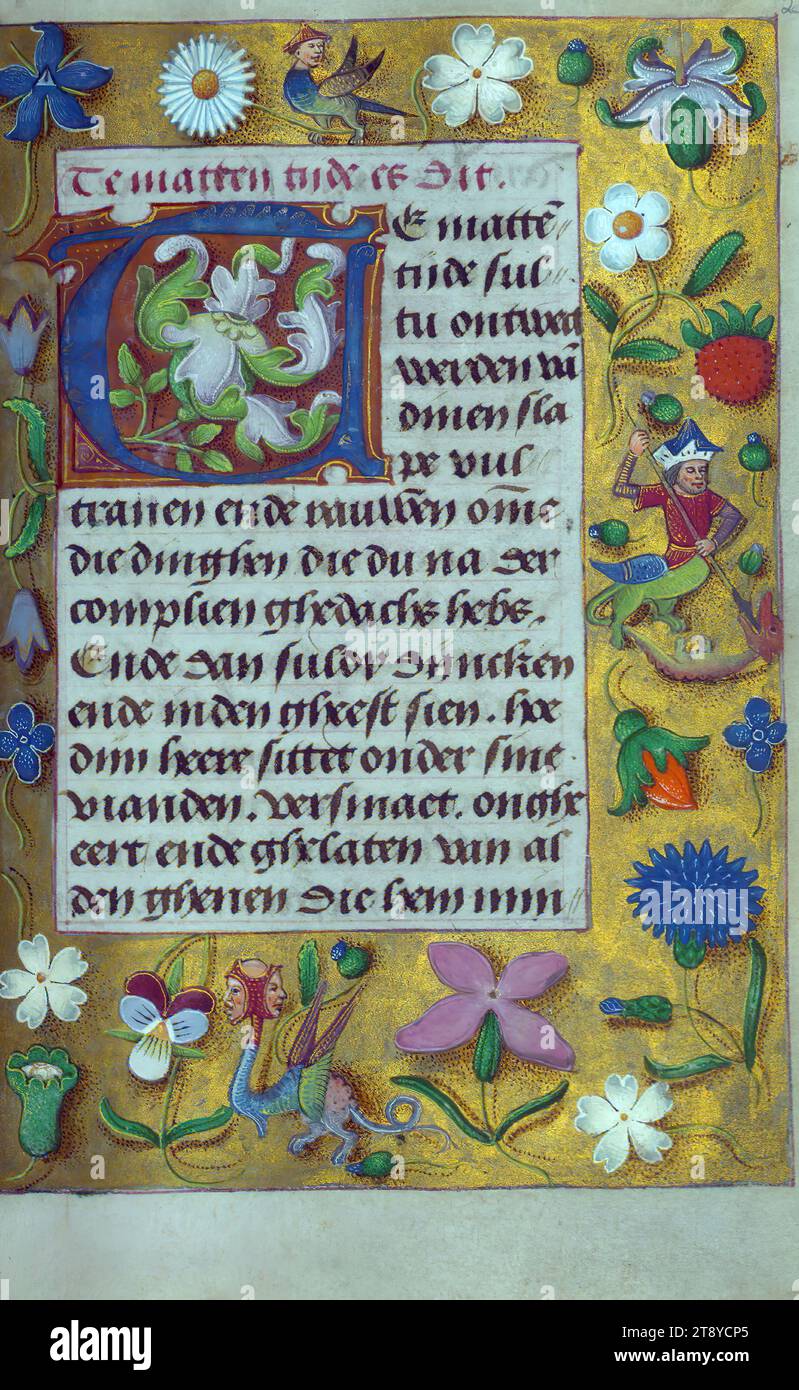 Te matten tijde es dit.
TE mattē
tijde sul
tu ontwect
werden vā
dinen sla
pe vul
tranen ende rauwen om̄e
die dinghen die du na der
complien ghedachs hebs.
Ende dan suldy dijncken
ende inden gheest sien. hoe
dijn heere sittet onder sine
vianden. versmaet. onghe
eert ende ghelaten van al
den ghenen die hem min
alamy
Image ID: 2T8YCP5
www.alamy.com